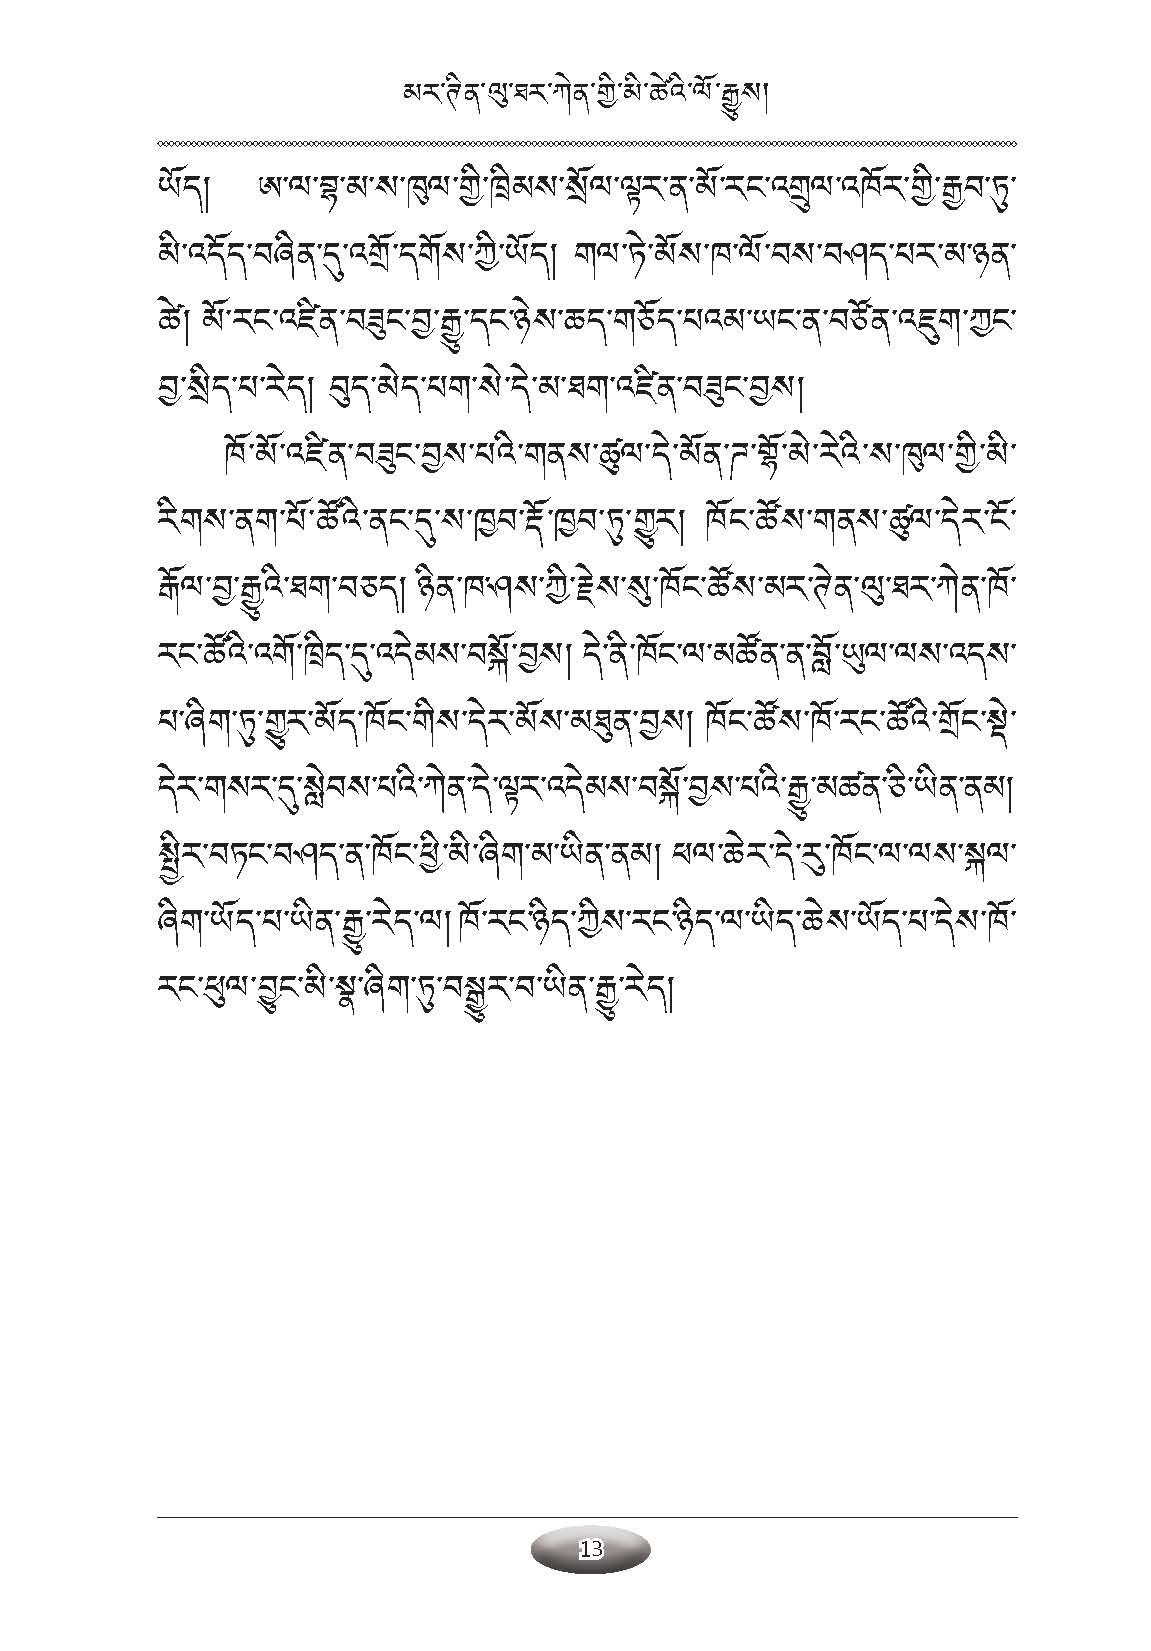 མར་ཊིན་ལུ་ཐར་ཀེན་གྱི་མི་ཚེའི་ལོ་རྒྱུས།
ཡོད། ཨ་ལ་བྷ་མ་ས་ཁུལ་གྱི་ཁྲིམས་སྲོལ་ལྟར་ན་མོ་རང་འགྲུལ་འཁོར་གྱི་རྒྱབ་ཏུ་
མི་འདོད་བཞིན་དུ་འགྲོ་དགོས་ཀྱི་ཡོད། གལ་ཏེ་མོས་ཁ་ལོ་བས་བཤད་པར་མ་ཉན་
ཚེ། མོ་རང་འཛིན་བཟུང་བྱ་རྒྱུ་དང་ཉེས་ཆད་གཅོད་པའམ་ཡང་ན་བཙོན་འཇུག་ཀྱང་
བྱ་སྲིད་པ་རེད། བུད་མེད་པག་སེ་དེ་མ་ཐག་འཛིན་བཟུང་བྱས།
ཁོ་མོ་འཛིན་བཟུང་བྱས་པའི་གནས་ཚུལ་དེ་མོན་ཊ་གྷོ་མེ་རེའི་ས་ཁུལ་གྱི་མི་
རིགས་ནག་པོ་ཚོའི་ནང་དུ་ས་ཁྱབ་རྡོ་ཁྱབ་ཏུ་གྱུར། ཁོང་ཚོས་གནས་ཚུལ་དེར་ངོ་
རྒོལ་བྱ་རྒྱུའི་ཐག་བཅད། ཉིན་ཁ་ཤས་ཀྱི་རྗེས་སུ་ཁོང་ཚོས་མར་ཊེན་ལུ་ཐར་ཀེན་ཁོ་
རང་ཚོའི་འགོ་ཁྲིད་དུ་འདེམས་བསྐོ་བྱས། དེ་ནི་ཁོང་ལ་མཚོན་ན་བློ་ཡུལ་ལས་འདས་
པ་ཞིག་ཏུ་གྱུར་མོད་ཁོང་གིས་དེར་མོས་མཐུན་བྱས། ཁོང་ཚོས་ཁོ་རང་ཚོའི་གྲོང་སྡེ་
དེར་གསར་དུ་སླེབས་པའི་ཀེན་དེ་ལྟར་འདེམས་བསྐོ་བྱས་པའི་རྒྱུ་མཚན་ཅི་ཡིན་ནམ།
སྤྱིར་བཏང་བཤད་ན་ཁོང་ཕྱི་མི་ཞིག་མ་ཡིན་ནམ། ཕལ་ཆེར་དེ་རུ་ཁོང་ལ་ལས་སྐལ་
ཞིག་ཡོད་པ་ཡིན་རྒྱུ་རེད་ལ། ཁོ་རང་ཉིད་ཀྱིས་རང་ཉིད་ལ་ཡིད་ཆེས་ཡོད་པ་དེས་ཁོ་
རང་ཕུལ་བྱུང་མི་སྣ་ཞིག་ཏུ་བསྒྱུར་བ་ཡིན་རྒྱུ་རེད།
13